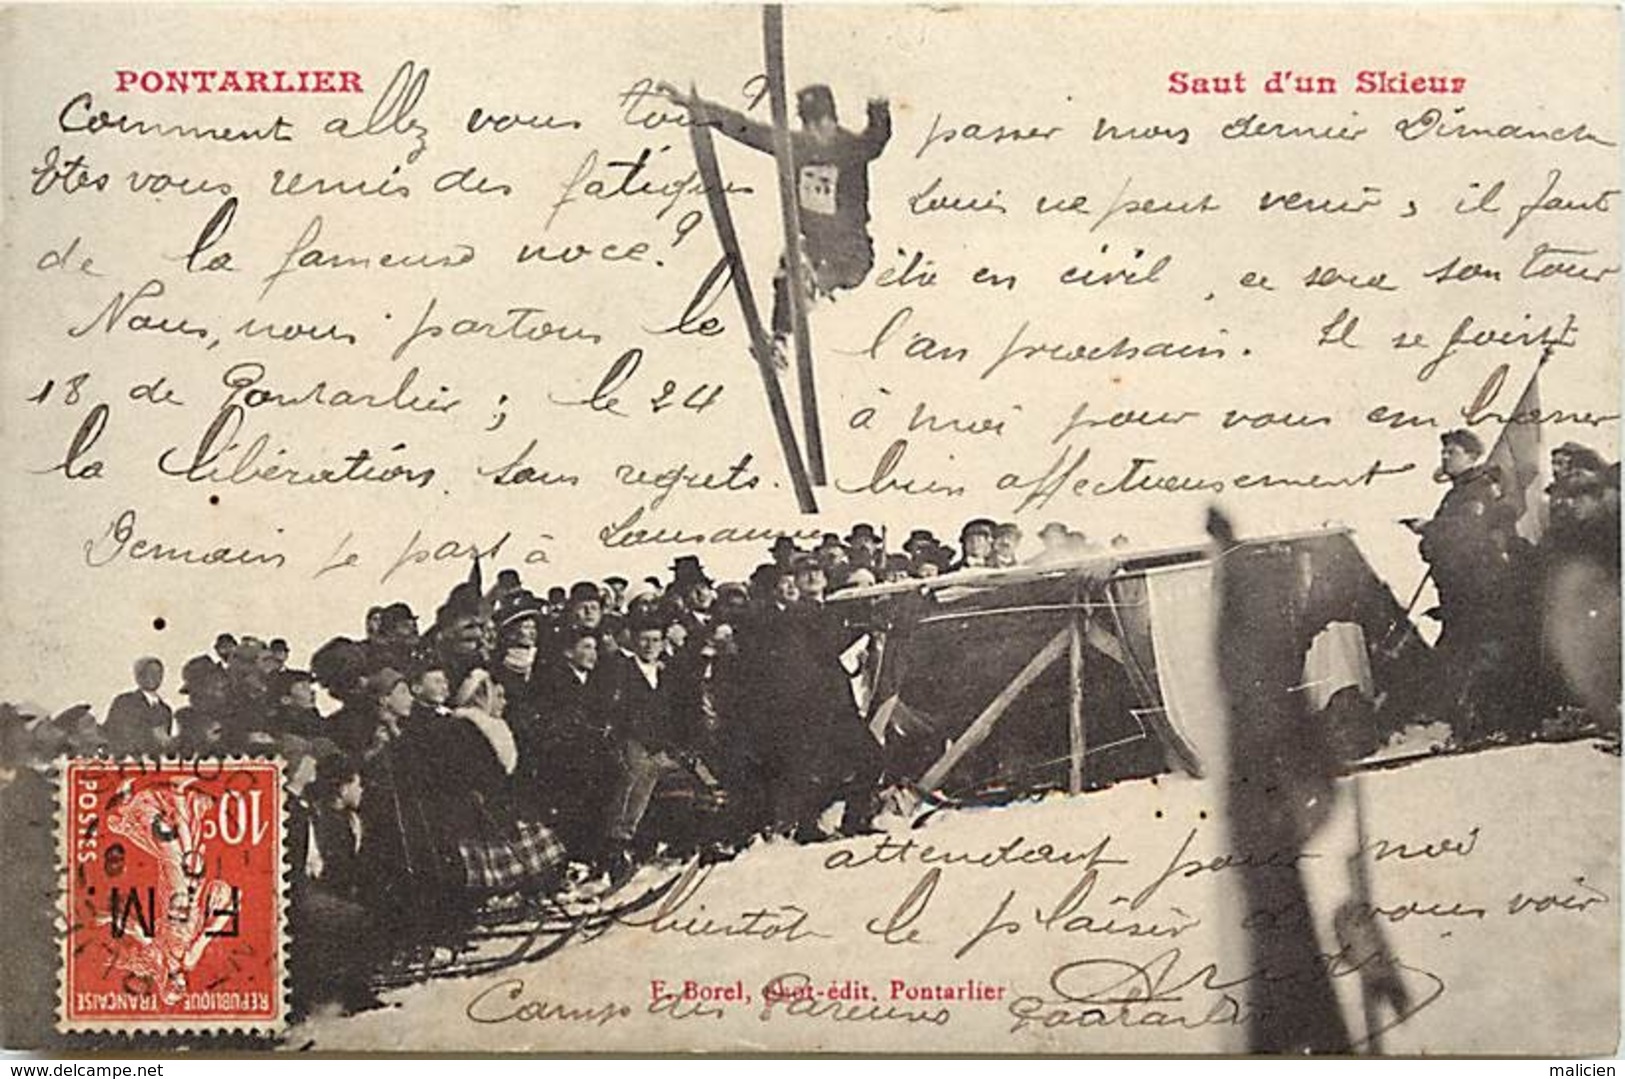 PONTARLIER
Saut d'un Skieur
Comment allez vous tous?
Etes vous remis des fatigues
de la fameuse noce?
Nous, nous partons le
18 de Pontarlier; le 24
la libération. Sans regrets.
Demain je pars à Lausanne
passer mon dernier Dimanche
Louis ne peut venir, il faut
être en civil, ce sera son tour
l'an prochain. Il se joint
à moi pour vous embrasser
bien affectueusement
attendant pour moi
bientôt le plaisir de vous voir
F. Borel, phot-édit. Pontarlier
Camp des Pontarlier
10c
POSTES
REPUBLIQUE FRANÇAISE
F. M.
delcampe.net
malicien